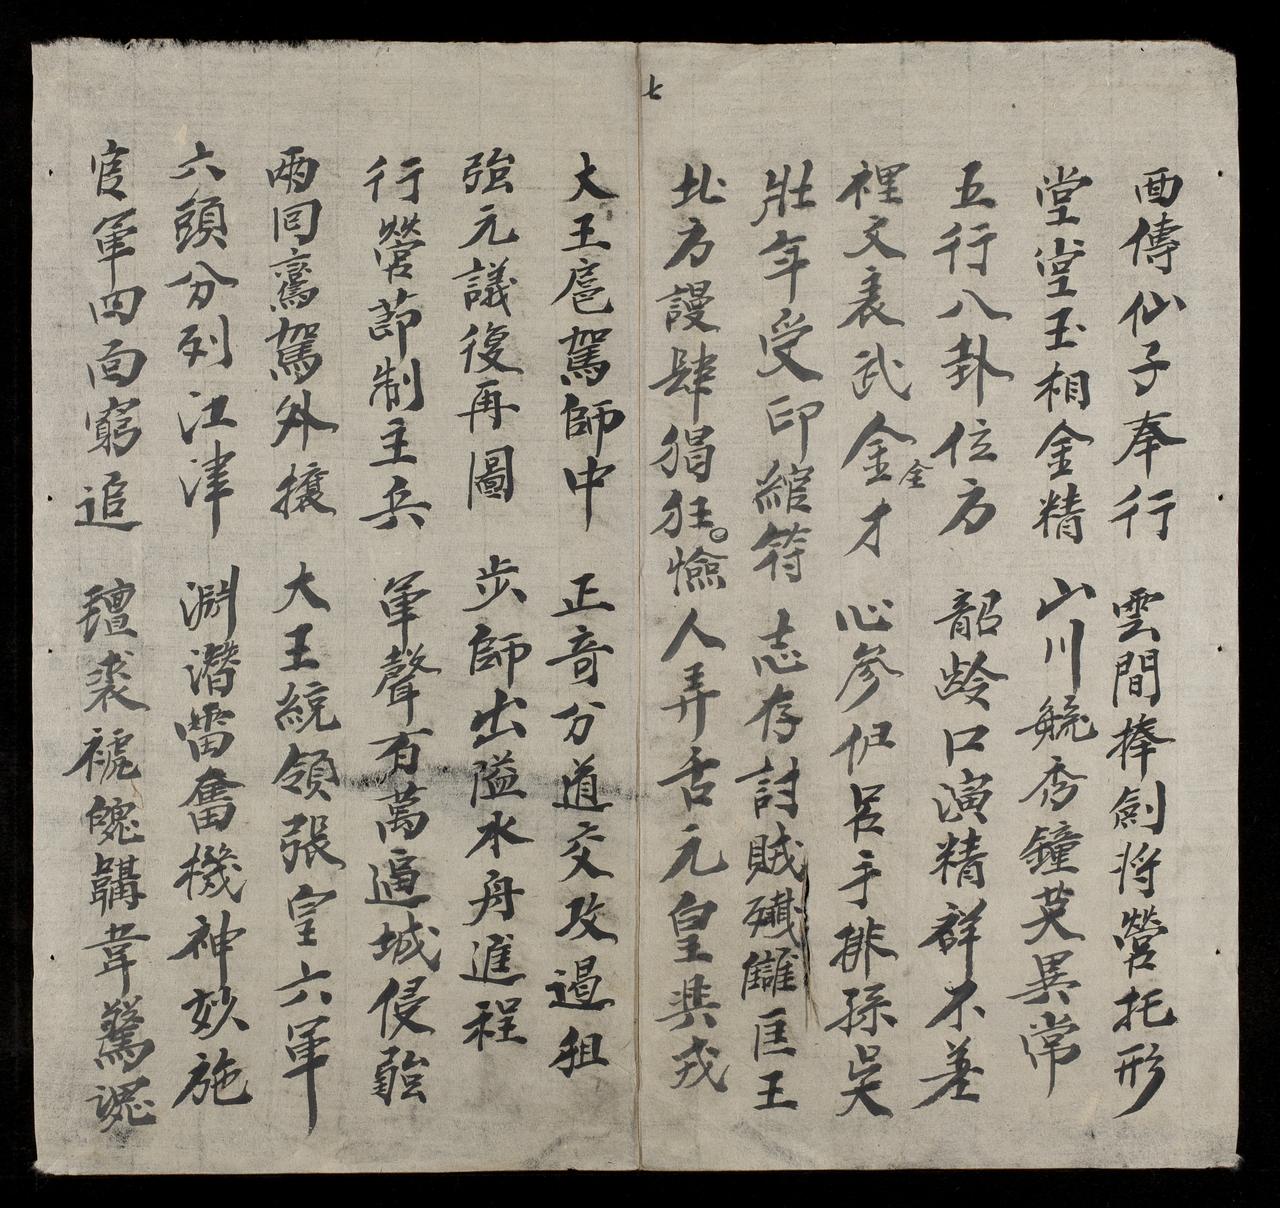 西傳仙子奉行 雲間捧劍将營托形
堂堂玉相金精 山川毓秀鐘英異常
五行八卦位方 韶齡口演精群不差
裡文表武金全才 心參伊呂手排孫吳
壯年受印綰符 志存討賊殲讎匡王
北方謾肆猖狂 憸人弄舌元皇興戎
七
大王扈駕師中 正奇分道交攻遏徂
強元議復再圖 步師出隘水舟進程
行營節制主兵 軍聲有萬逼城侵強
兩回鸞駕外攘 大王統領張皇六軍
六頭分列江津 淵潛雷奮機神妙施
官軍四面窮追 氊裘褫魄韝韋驚